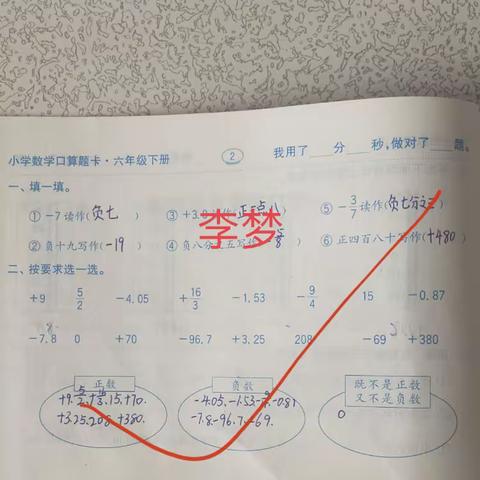 小学数学口算题卡·六年级下册 2 我用了____分____秒,做对了____题。
一、填一填。
① -7读作(负七) ③ +3.8读作(正三点八) ⑤ -3/7读作(负七分之三)
② 负十九写作(-19) ④ 负八分之五写作(-5/8) ⑥ 正四百八十写作(+480)
李梦
二、按要求选一选。
+9 5/2 -4.05 +16/3 -1.53 -9/4 15 -0.87
-7.8 0 +70 -96.7 +3.25 208 -69 +380
正数 负数 既不是正数
又不是负数
+9. 5/2. +16/3. 15. +70. -4.05. -1.53 0
+3.25. 208. +380. -7.8. -96.7. -69.